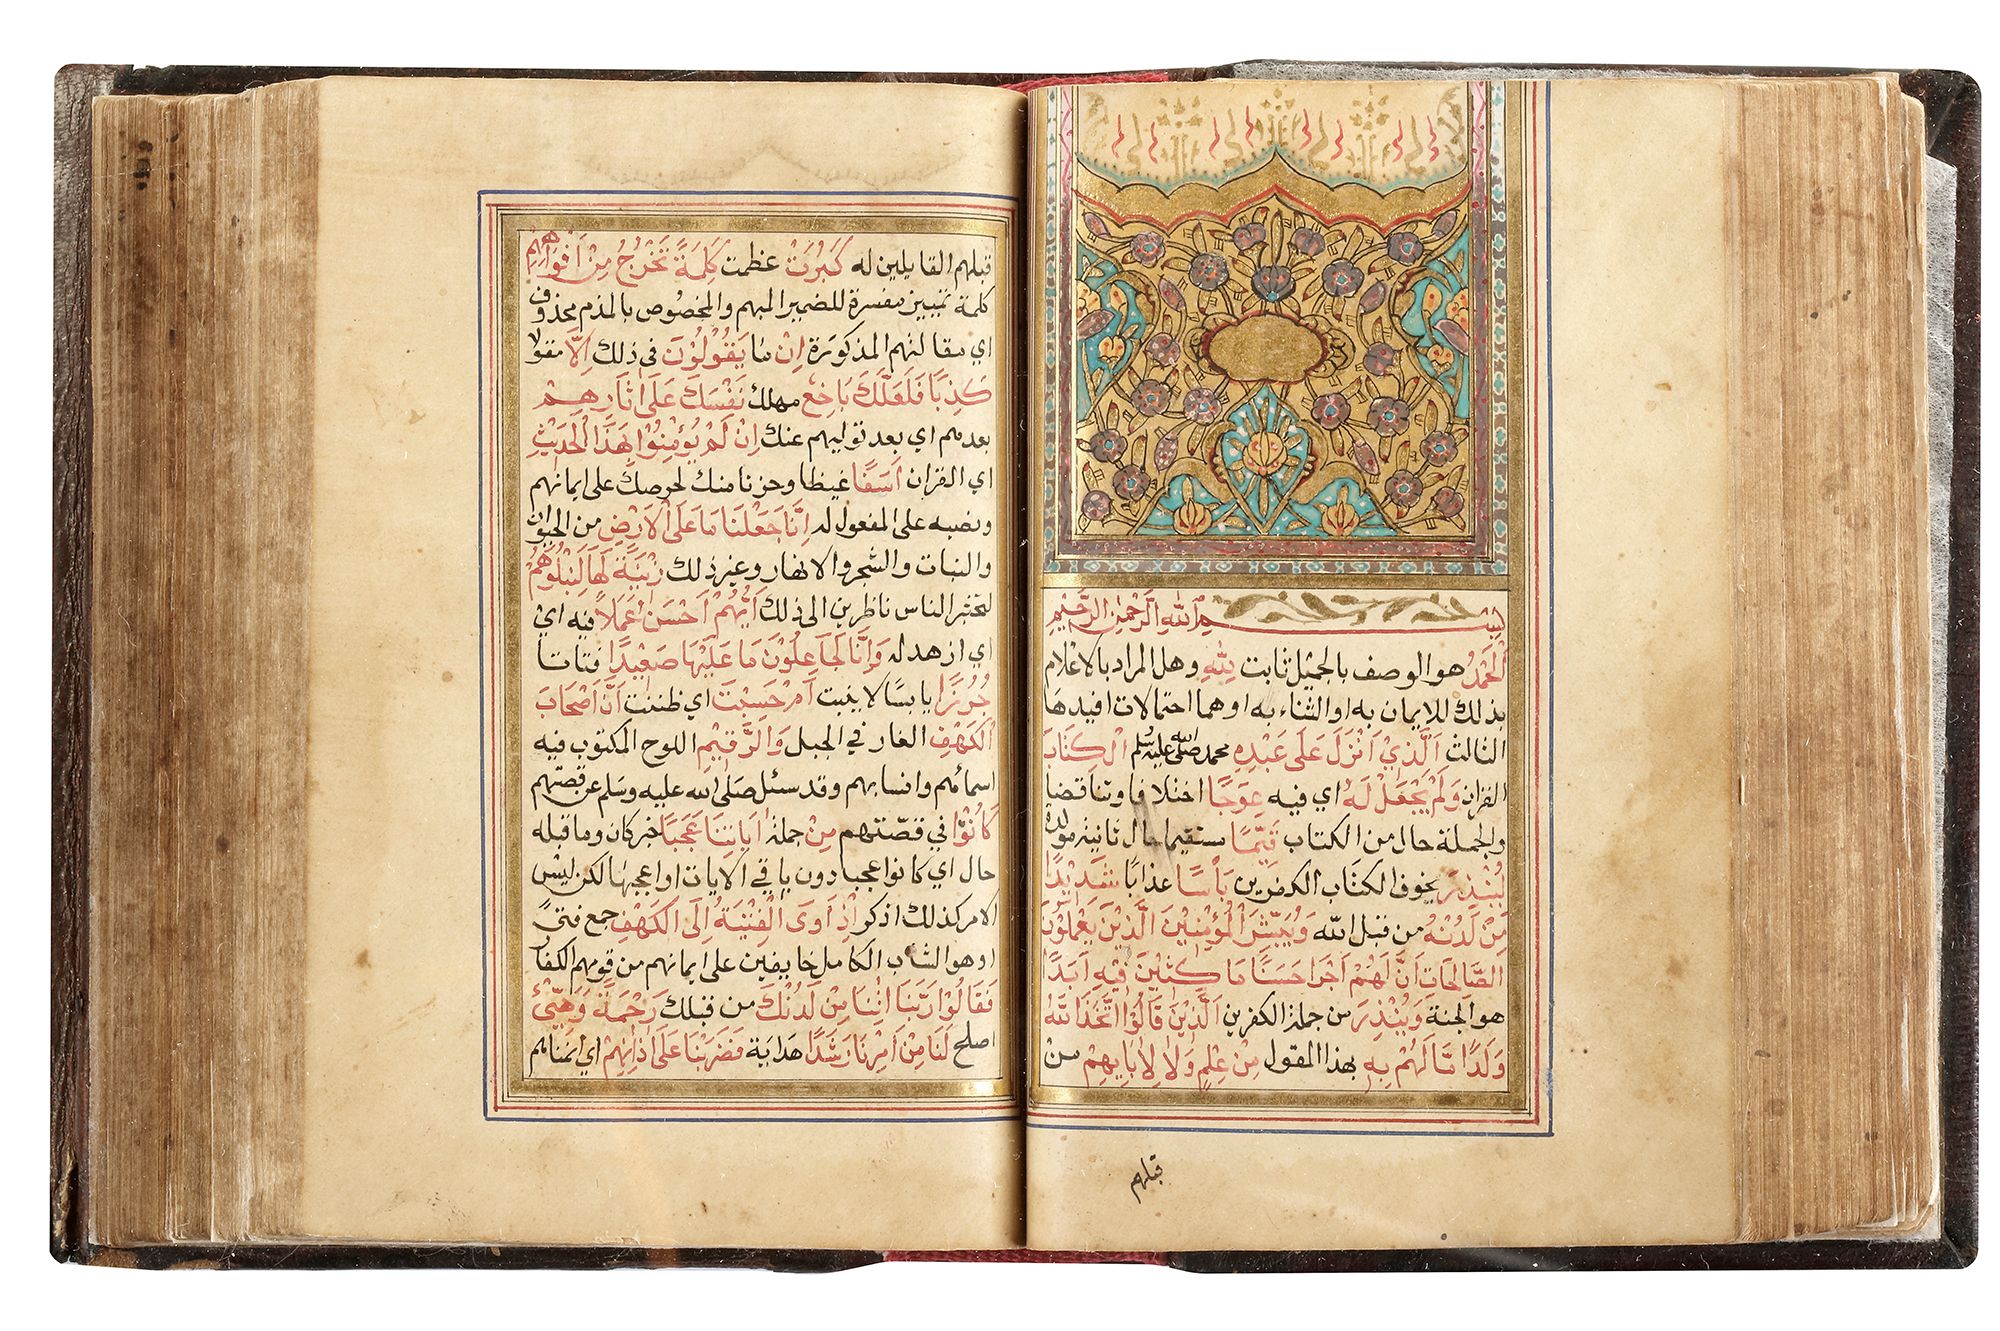 بسم الله الرحمن الرحيم
اَلْحَمْدُ هو الوصف بالجميل ثابت لِلّٰهِ وهل المراد بالاعلام
بذلك للايمان به او الثناء به او هما احتمالات افيدها
الثالث اَلَّذِيْ اَنْزَلَ عَلٰى عَبْدِهِ محمد صلى الله عليه وسلم الْكِتَابَ
القران وَلَمْ يَجْعَلْ لَهُ اي فيه عِوَجًا اختلافا وتناقضا
والجملة حال من الكتاب قَيِّمًا مستقيما حال ثانية مولدة
لِيُنْذِرَ يخوف الكتاب الكفرين بَأْسًا عذابًا شَدِيْدًا
مِنْ لَدُنْهُ من قبل الله وَيُبَشِّرَ الْمُؤْمِنِيْنَ الَّذِيْنَ يَعْمَلُوْنَ
الصَّالِحَاتِ اَنَّ لَهُمْ اَجْرًا حَسَنًا مَاكِثِيْنَ فِيْهِ اَبَدًا
هو الجنة وَيُنْذِرَ من جملة الكفرين الَّذِيْنَ قَالُوْا اتَّخَذَ اللّٰهُ
وَلَدًا مَّا لَهُمْ بِهِ بهذا المقول مِنْ عِلْمٍ وَلَا لِاٰبَايِهِمْ من
قبلهم
قبلهم القايلين له كَبُرَتْ عظمت كَلِمَةً تَخْرُجُ مِنْ اَفْوَاهِهِمْ
كلمة تمييز مفسرة للضمير المبهم والمخصوص بالذم محذوف
اي مقالتهم المذكورة اِنْ ما يَقُوْلُوْنَ في ذلك اِلَّا مقولا
كَذِبًا فَلَعَلَّكَ بَاخِعٌ مهلك نَفْسَكَ عَلٰى اٰثَارِهِمْ
بعدهم اي بعد توليهم عنك اِنْ لَمْ يُؤْمِنُوْا بِهٰذَا الْحَدِيْثِ
اي القران اَسَفًا غيظا وحزنا منك لحرصك على ايمانهم
ونصبه على المفعول له اِنَّا جَعَلْنَا مَا عَلَى الْاَرْضِ من الحيوان
والنبات والشجر والانهار وغير ذلك زِيْنَةً لَهَا لِنَبْلُوَهُمْ
لنختبر الناس ناظرين الى ذلك اَيُّهُمْ اَحْسَنُ عَمَلًا فيه اي
اي ازهد له وَاِنَّا لَجَاعِلُوْنَ مَا عَلَيْهَا صَعِيْدًا فتاتا
جُرُزًا يابسا لا ينبت اَمْ حَسِبْتَ اي ظننت اَنَّ اَصْحَابَ
الْكَهْفِ الغار في الجبل وَالرَّقِيْمِ اللوح المكتوب فيه
اسمائهم وانسابهم وقد سئل صلى الله عليه وسلم عن قصتهم
كَانُوْا في قصتهم مِنْ جملة اٰيَاتِنَا عَجَبًا خبر كان وما قبله
حال اي كانوا عجبا دون باقي الايات او اعجبها لكن ليس
الامر كذلك اذكر اِذْ اَوَى الْفِتْيَةُ اِلَى الْكَهْفِ جمع فتىً
وهو الشاب الكامل خايفين على ايمانهم من قومهم الكفار
فَقَالُوْا رَبَّنَا اٰتِنَا مِنْ لَدُنْكَ من قبلك رَحْمَةً وَهَيِّئْ
اصلح لَنَا مِنْ اَمْرِنَا رَشَدًا هداية فَضَرَبْنَا عَلٰى اٰذَانِهِمْ اي انمناهم